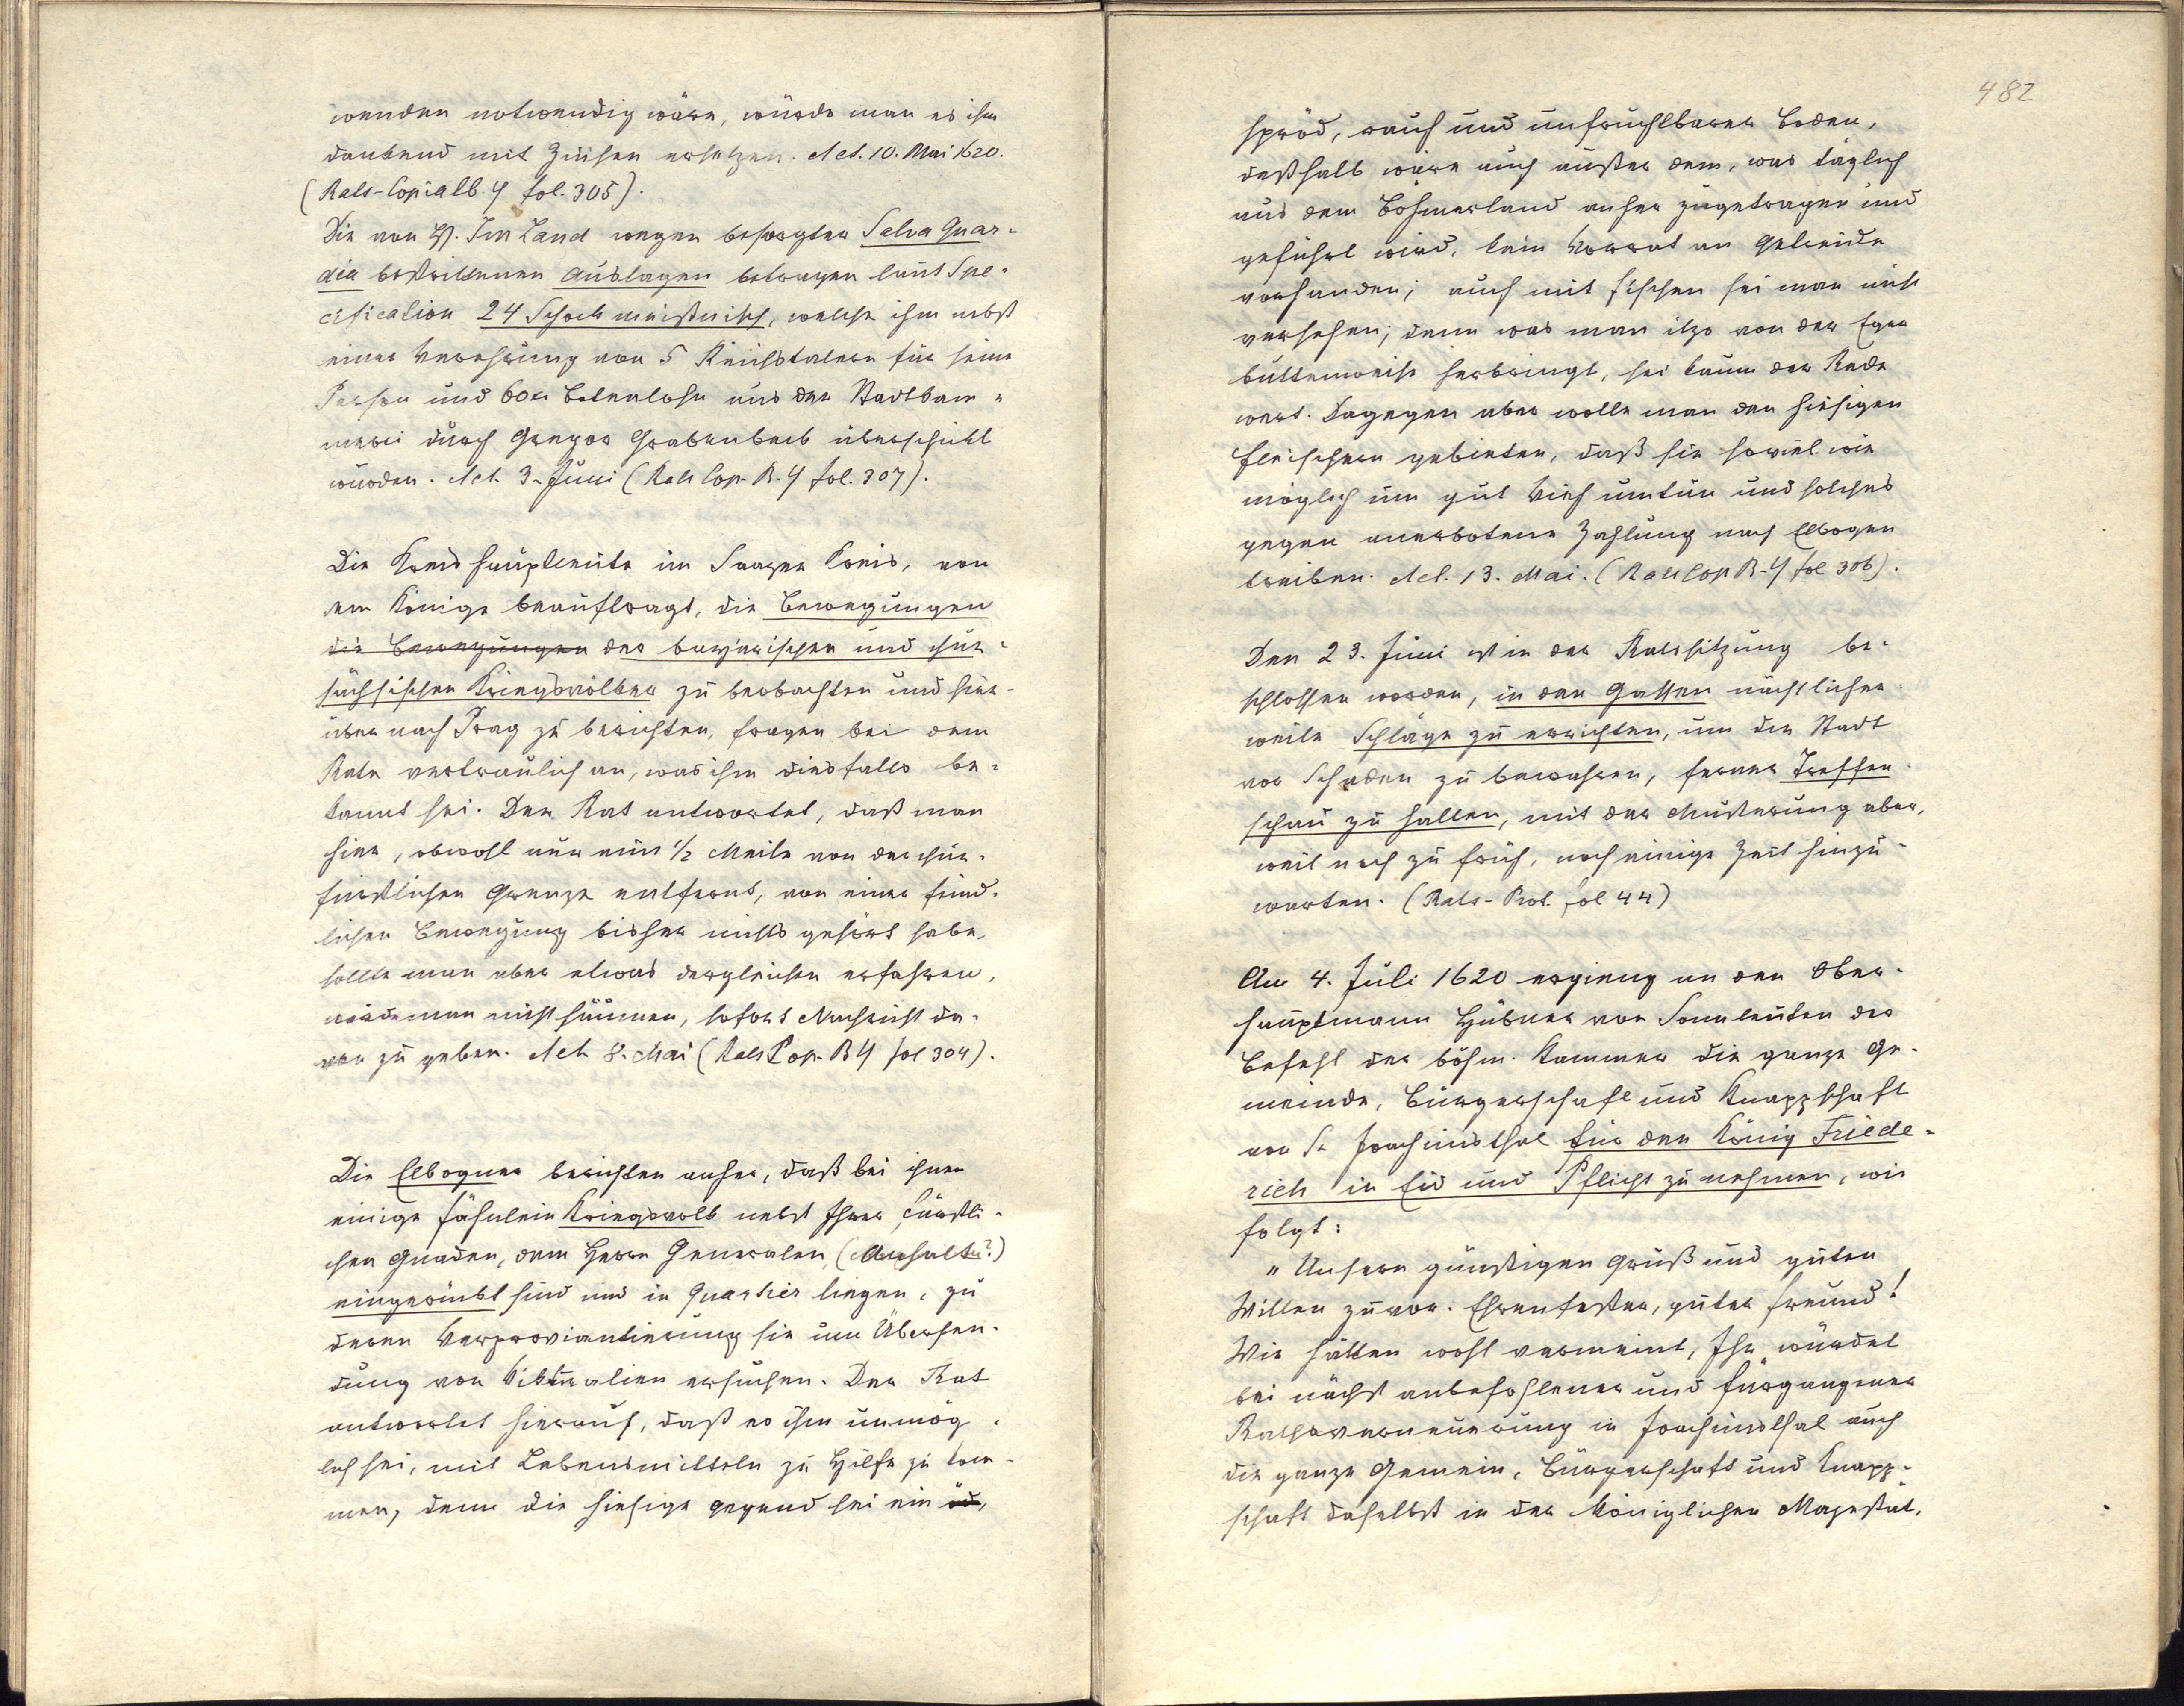 wenden notwendig wäre, würde man es ihm
dankend mit Zinsen ersetzen. Act. 10. Mai 1620.
(Rats-Copialb. 4 fol. 305).
Die von H. Im Land wegen besorgter Salva Quar-
dia bestrittenen Auslagen betragen laut Spe-
cification 24 Schock meißnisch, welche ihm nebst
einer Verehrung von 5 Reichstalern für seine
Person und 60 kr Botenlohn aus der Stadtkam-
merei durch Gregor Grabenbeck überschickt
wurden. Act. 3. Juni (Rats Cop. B. 4 fol. 307).
Die Kreishauptleute im Saazer Kreis, von
dem Könige beauftragt, die Bewegungen
die Bewegungen der bayrischen und chur-
sächsischen Kriegsvölker zu beobachten und hier-
über nach Prag zu berichten, fragen bei dem
Rate vertraulich an, was ihm diesfalls be-
kannt sei. Der Rat antwortet, daß man
hier, obwohl nur eine 1/2 Meile von der chur-
fürstlichen Grenze entfernt, von einer feind-
lichen Bewegung bisher nichts gehört habe,
sollte man aber etwas dergleichen erfahren,
würde man nicht säumen, sofort Nachricht da-
von zu geben. Act. 8. Mai (Rats Cop. B 4 fol 304).
Die Elbogner berichten anher, daß bei ihnen
einige Fähnlein Kriegsvolk nebst Ihrer Fürstli-
chen Gnaden, dem Herrn Generalen, (Anhalt?)
eingerückt sind und in Quartier liegen, zu
deren Verproviantierung sie um Übersen-
dung von Viktualien ersuchen. Der Rat
antwortet hierauf, daß es ihm unmög-
lich sei, mit Lebensmitteln zu Hilfe zu kom-
men, denn die hiesige Gegend sei ein öd,
482
spröd, rauh und unfruchtbarer Boden,
deßhalb wäre auch außer dem, was täglich
aus dem Böhmerland anher zugetragen und
geführt wird, kein Vorrat an Getreide
vorhanden; auch mit Fischen sei man nicht
versehen; denn was man itzo von der Eger
buttenweise herbringt, sei kaum der Rede
wert. Dagegen aber wolle man den hiesigen
Fleischern gebieten, daß sie soviel wie
möglich um gut Vieh umtun und solches
gegen anerbotene Zahlung nach Elbogen
treiben. Act. 13. Mai. (Rats Cop B. 4 fol 306).
Den 23. Juni ist in der Ratssitzung be-
schlossen worden, in den Gassen nächtlicher-
weile Schläge zu errichten, um die Stadt
vor Schaden zu bewahren, ferner Treffen-
schau zu halten, mit der Musterung aber,
weil noch zu früh, noch einige Zeit hinzu-
warten. (Rats-Prot. fol 44)
Am 4. Juli 1620 ergieng an den Ober-
hauptmann Hübner von Sonnleuten der
Befehl der böhm. Kammer die ganze Ge-
meinde, Bürgerschaft und Knappschaft
von St. Joachimsthal für den König Friede-
rich in Eid und Pflicht zu nehmen, wie
folgt:
"Unsern günstigen Gruß und guten
Willen zuvor. Ehrenfester, guter Freund!
Wir hätten wohl vermeint, Ihr würdet
bei nächst anbefohlener und fürgangener
Rathsverneuerung in Joachimsthal auch
die ganze Gemein, Bürgerschaft und Knapp-
schaft daselbst in der Königlichen Majestät.